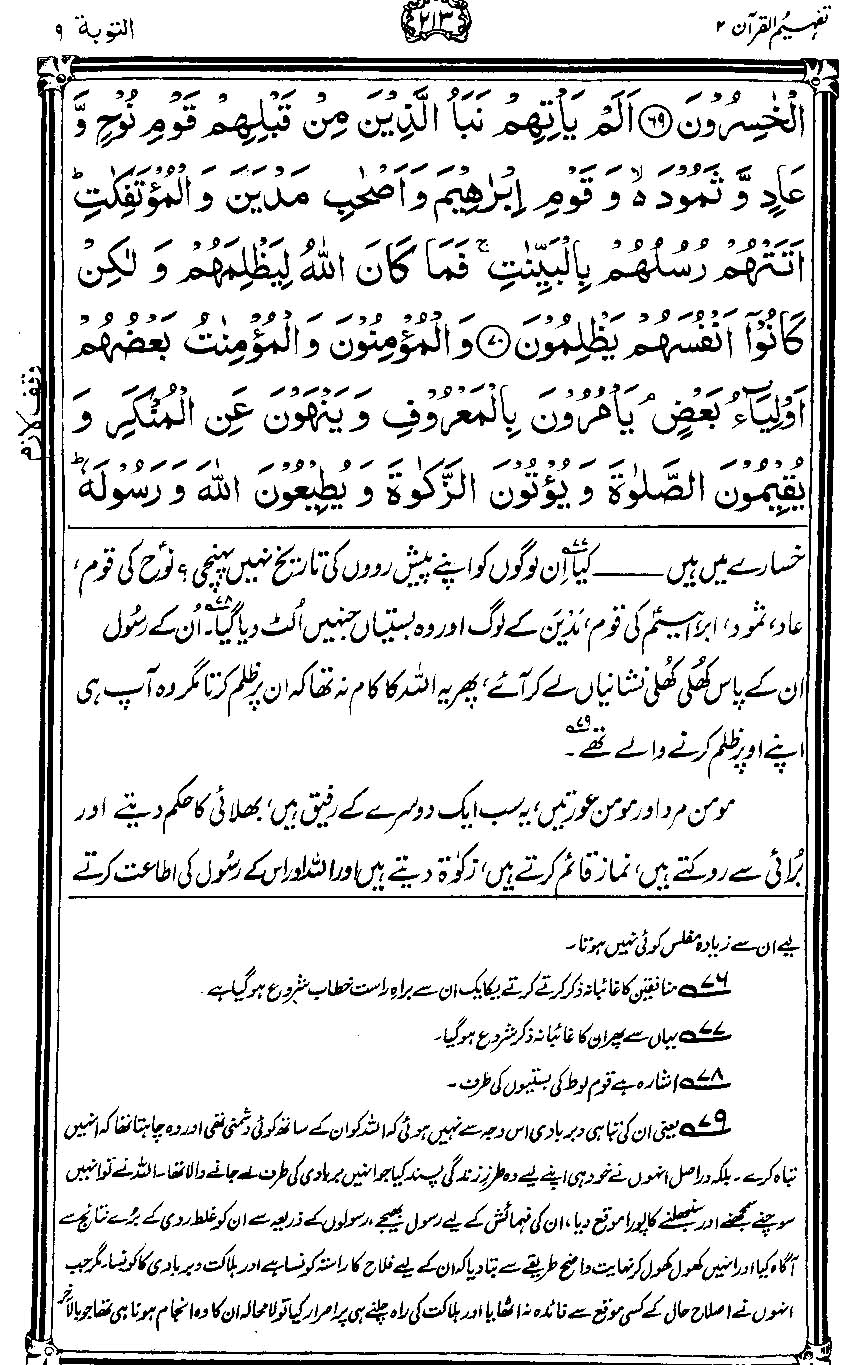 تفہیم القرآن ۲
۲۱۳
التوبۃ ۹
الْخٰسِرُوْنَ ﴿۶۹﴾ اَلَمْ یَاْتِهِمْ نَبَاُ الَّذِیْنَ مِنْ قَبْلِهِمْ قَوْمِ نُوْحٍ وَّ
عَادٍ وَّ ثَمُوْدَ ۙ۬ وَ قَوْمِ اِبْرٰهِیْمَ وَ اَصْحٰبِ مَدْیَنَ وَ الْمُؤْتَفِكٰتِ ؕ
اَتَتْهُمْ رُسُلُهُمْ بِالْبَیِّنٰتِ ۚ فَمَا كَانَ اللّٰهُ لِیَظْلِمَهُمْ وَ لٰكِنْ
كَانُوْۤا اَنْفُسَهُمْ یَظْلِمُوْنَ ﴿۷۰﴾ وَ الْمُؤْمِنُوْنَ وَ الْمُؤْمِنٰتُ بَعْضُهُمْ
اَوْلِیَآءُ بَعْضٍ ۘ یَاْمُرُوْنَ بِالْمَعْرُوْفِ وَ یَنْهَوْنَ عَنِ الْمُنْكَرِ وَ
یُقِیْمُوْنَ الصَّلٰوةَ وَ یُؤْتُوْنَ الزَّكٰوةَ وَ یُطِیْعُوْنَ اللّٰهَ وَ رَسُوْلَهٗ ؕ
وقف لازم
خسارے میں ہیں ــــــــ کیا۷۷ اِن لوگوں کو اپنے پیش رووں کی تاریخ نہیں پہنچی؟ نوحؑ کی قوم،
عاد، ثمود، ابراہیمؑ کی قوم، مَدْیَن کے لوگ اور وہ بستیاں جنہیں اُلٹ دیا گیا۷۸۔ اُن کے رسُول
ان کے پاس کھُلی کھُلی نشانیاں لے کر آئے، پھر یہ اللہ کا کام نہ تھا کہ ان پر ظلم کرتا مگر وہ آپ ہی
اپنے اوپر ظلم کرنے والے تھے۷۹۔
مومن مرد اور مومن عورتیں، یہ سب ایک دوسرے کے رفیق ہیں، بھلائی کا حکم دیتے اور
بُرائی سے روکتے ہیں، نماز قائم کرتے ہیں، زکوٰۃ دیتے ہیں اور اللہ اور اس کے رسُول کی اطاعت کرتے
لیے ان سے زیادہ مفلس کوئی نہیں ہوتا۔
۷۶ منافقین کا غائبانہ ذکر کرتے کرتے یکایک ان سے براہِ راست خطاب شروع ہو گیا ہے۔
۷۷ یہاں سے پھر ان کا غائبانہ ذکر شروع ہو گیا۔
۷۸ اشارہ ہے قوم لوط کی بستیوں کی طرف۔
۷۹ یعنی ان کی تباہی و بربادی اس وجہ سے نہیں ہوئی کہ اللہ کو ان کے ساتھ کوئی دشمنی تھی اور وہ چاہتا تھا کہ انہیں
تباہ کرے۔ بلکہ دراصل انہوں نے خود ہی اپنے لیے وہ طرزِ زندگی پسند کیا جو انہیں بربادی کی طرف لے جانے والا تھا۔ اللہ نے تو انہیں
سوچنے سمجھنے اور سنبھلنے کا پورا موقع دیا، ان کی فہمائش کے لیے رسول بھیجے، رسولوں کے ذریعہ سے ان کو غلط روی کے بُرے نتائج سے
آگاہ کیا اور انہیں کھول کھول کر نہایت واضح طریقے سے بتا دیا کہ ان کے لیے فلاح کا راستہ کونسا ہے اور ہلاکت و بربادی کا کونسا۔ مگر جب
انہوں نے اصلاحِ حال کے کسی موقع سے فائدہ نہ اٹھایا اور ہلاکت کی راہ چلنے ہی پر اصرار کیا تو لامحالہ ان کا وہ انجام ہونا ہی تھا جو بالآخر